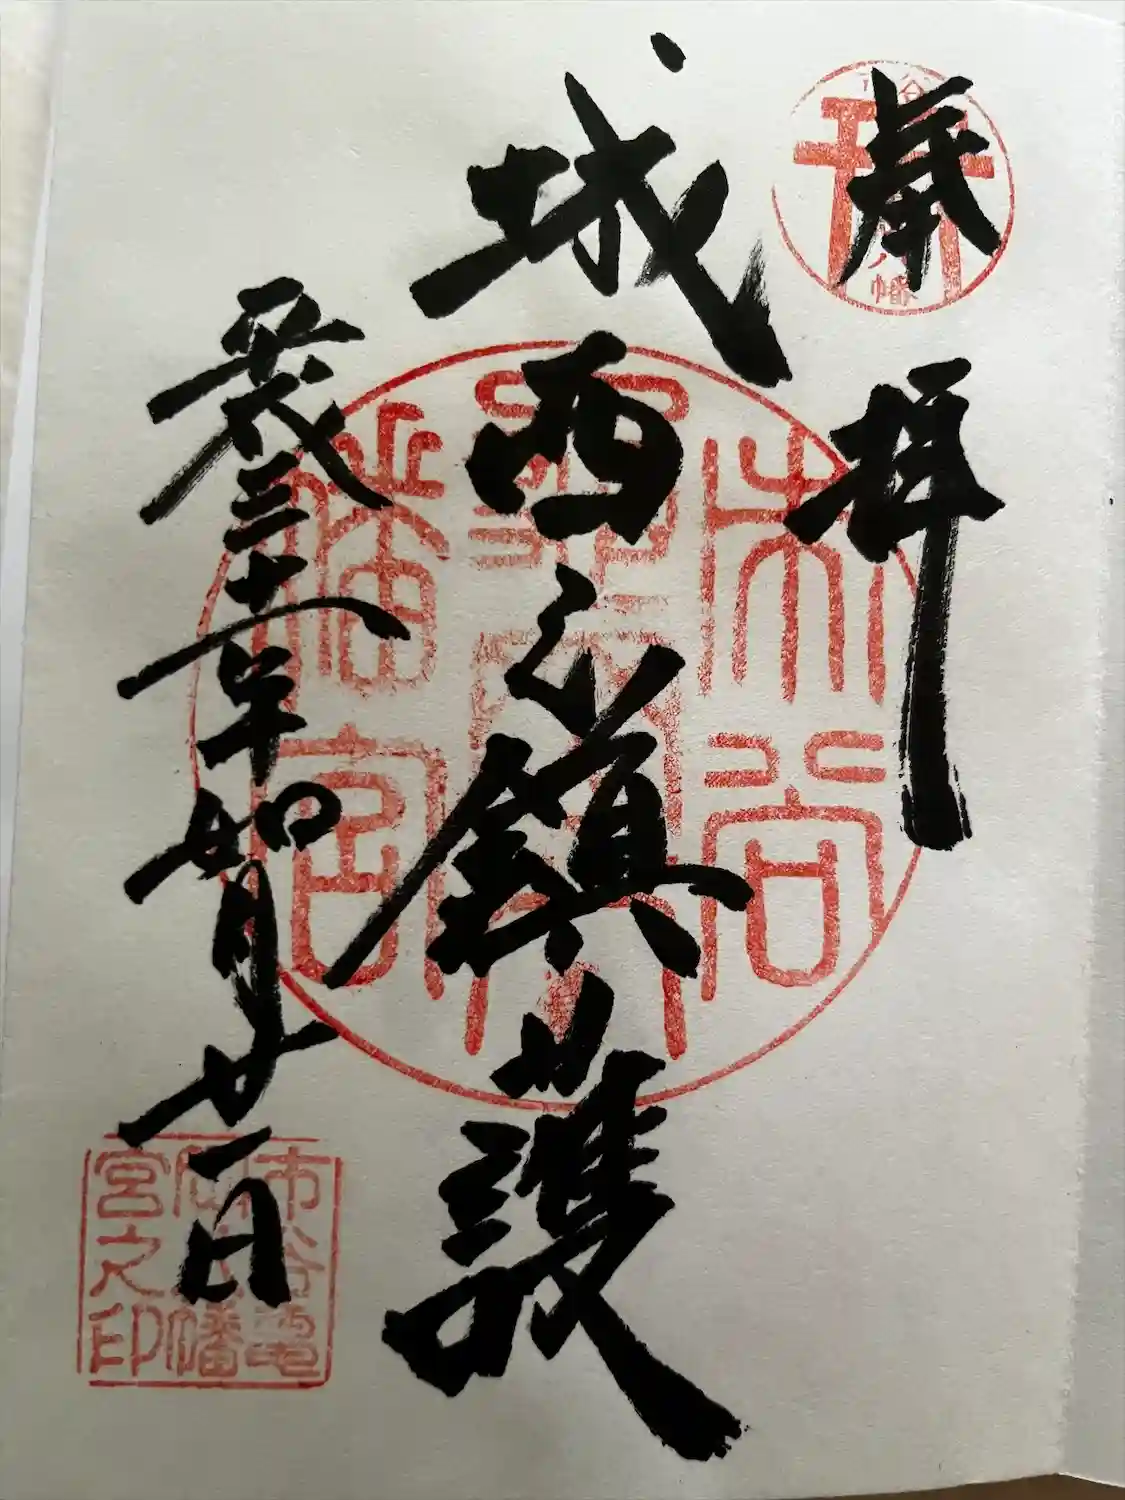 奉拝
城西之鎮護
平成三十年如月廿一日
市谷亀岡八幡宮
市谷亀岡八幡宮之印